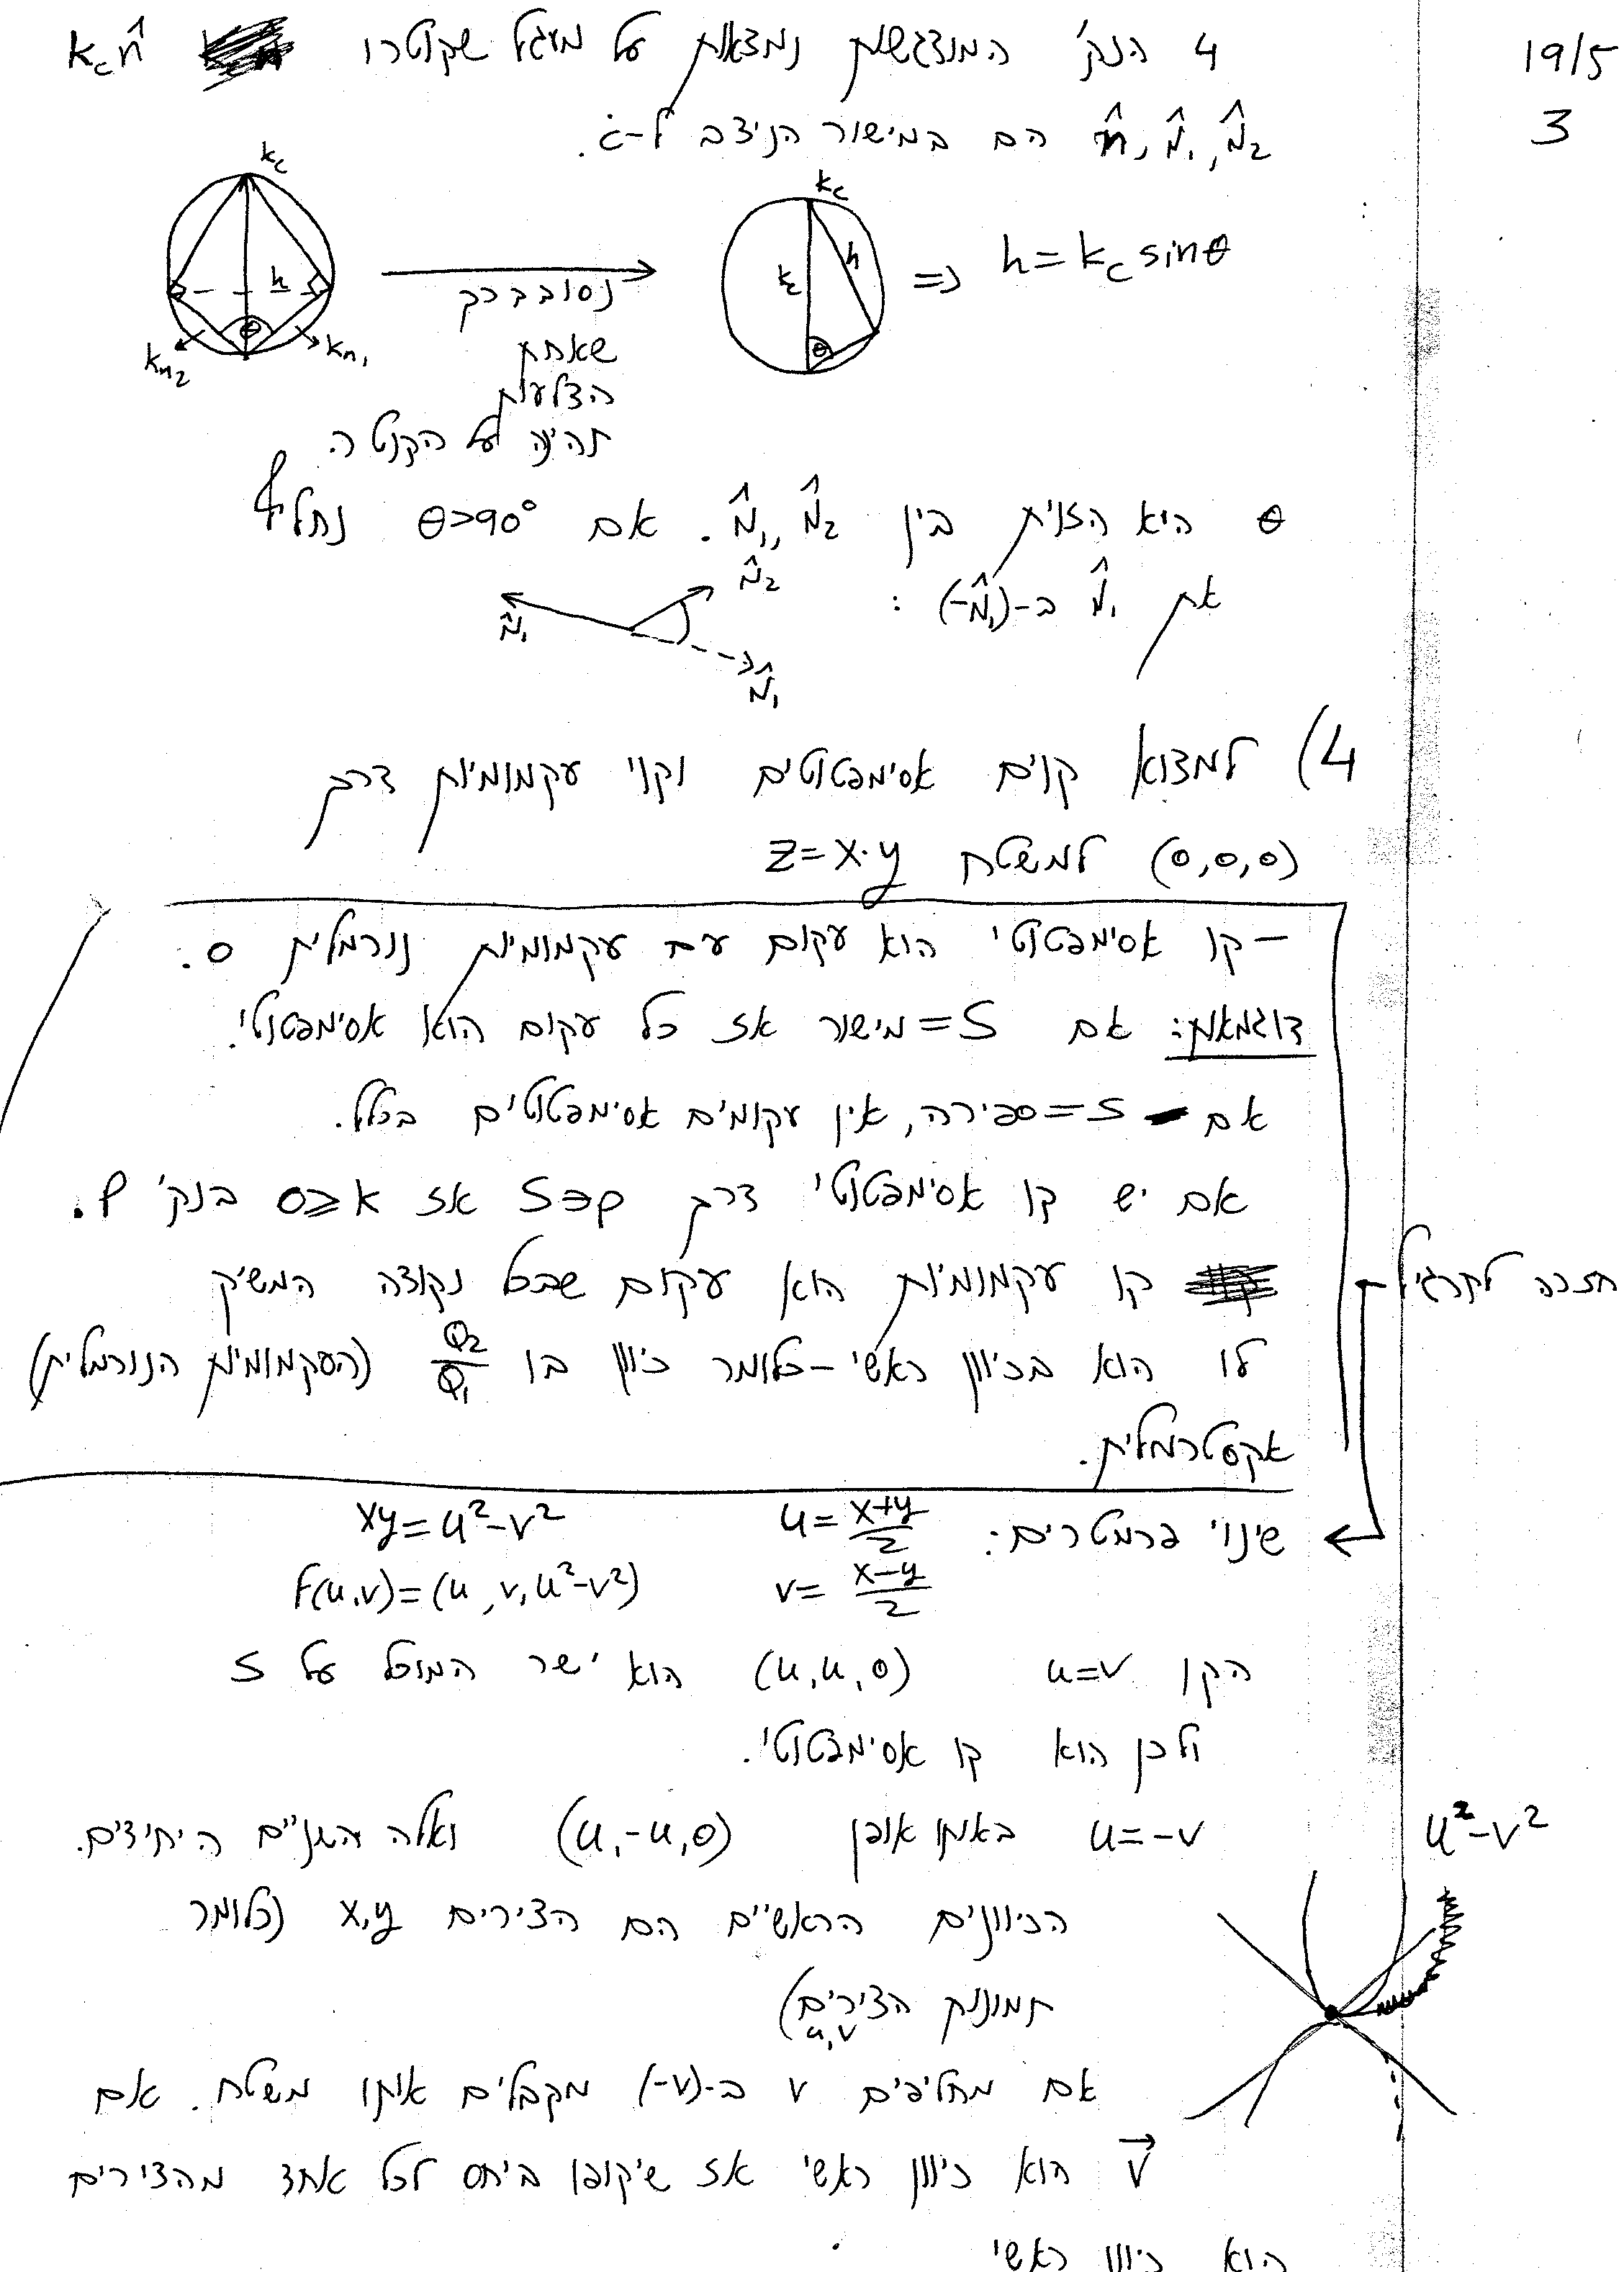 19/5
3
4 הנק' המודגשות נמצאות על מעגל שקוטרו k_c n̂
N̂₂, N̂₁, n̂ הם במישור הניצב ל-ċ.
k_c
h
θ
k_{n_2}
k_{n_1}
נסובב כך
שאחת
הצלעות
תהיה על הקוטר.
k_c
k_c
h
θ
=> h = k_c sinθ
θ היא הזוית בין N̂₁, N̂₂. אם θ>90° נחליף
את N̂₁ ב-(-N̂₁) :
N̂₂
N̂₁
N̂₁
4) למצוא קוים אסימפטוטים וקוי עקמומיות דרך
(0,0,0) למשטח z=x·y
– קו אסימפטוטי הוא עקום עם עקמומיות נורמלית 0.
דוגמאות: אם S=מישור אז כל עקום הוא אסימפטוטי.
אם S=ספירה, אין עקומים אסימפטוטים בכלל.
אם יש קו אסימפטוטי דרך p∈S אז K≤0 בנק' p.
קו עקמומיות הוא עקום שבכל נקודה המשיק
לו הוא בכיוון ראשי – כלומר כיוון בו Q₂/Q₁ (העקמומיות הנורמלית)
אקסטרמלית.
חזרה לתרגיל
שינוי פרמטרים: u=(x+y)/2 xy=u²-v²
v=(x-y)/2 f(u,v)=(u,v,u²-v²)
הקו u=v (u,u,0) הוא ישר המוכל על S
ולכן הוא קו אסימפטוטי.
u=-v באותו אופן (u,-u,0) ואלה השניים היחידים.
u²-v²
הכיוונים הראשיים הם הצירים x,y (כלומר
תמונת הצירים)
u,v
אם מחליפים v ב-(-v) מקבלים אותו משטח. אם
v⃗ הוא כיוון ראשי אז שיקופו ביחס לכל אחד מהצירים
הוא כיוון ראשי